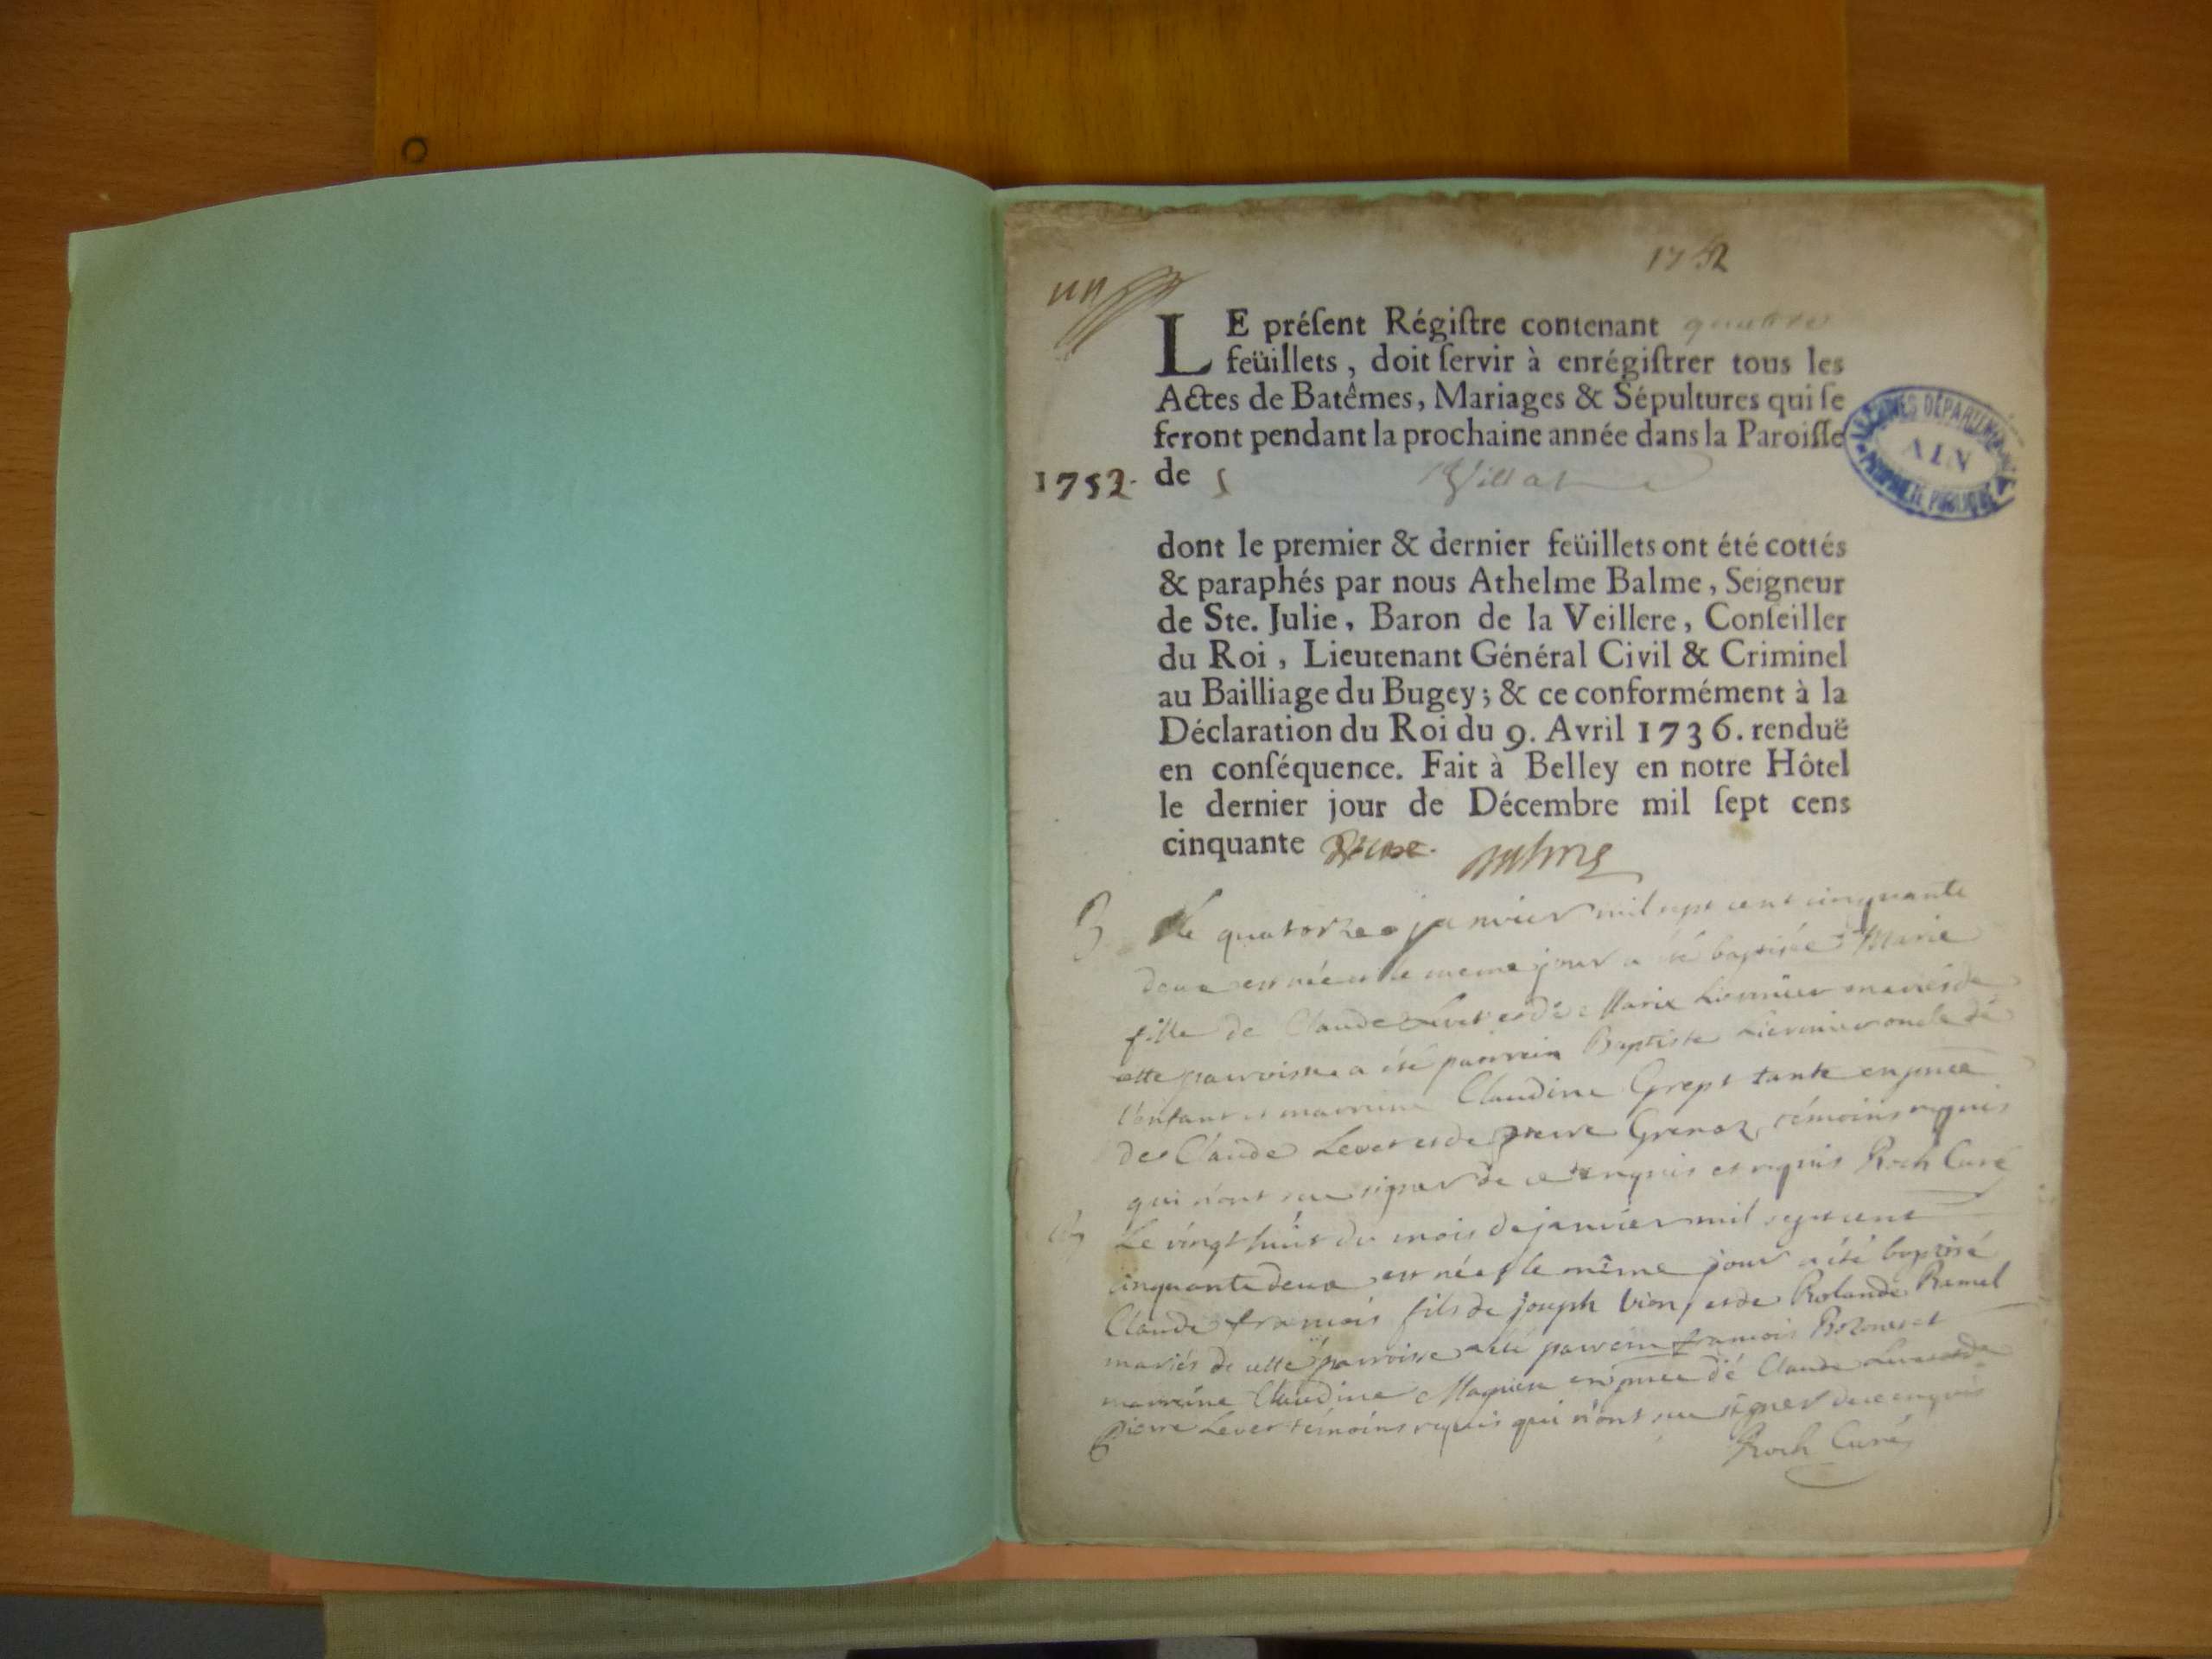 1752
un
LE préſent Régiſtre contenant quattre
feüillets, doit ſervir à enrégiſtrer tous les
Actes de Batêmes, Mariages & Sépultures qui ſe
feront pendant la prochaine année dans la Paroiſſe
1752. de
dont le premier & dernier feüillets ont été cottés
& paraphés par nous Athelme Balme, Seigneur
de Ste. Julie, Baron de la Veillere, Conſeiller
du Roi, Lieutenant Général Civil & Criminel
au Bailliage du Bugey; & ce conformément à la
Déclaration du Roi du 9. Avril 1736. renduë
en conſéquence. Fait à Belley en notre Hôtel
le dernier jour de Décembre mil ſept cens
cinquante
ARCHIVES DÉPARTEMENTALES
AIN
PROPRIÉTÉ PUBLIQUE
Le quatorze janvier mil sept cent cinquante
deux est née et le meme jour a été baptisée Marie
fille de Claude Levet et de Marie mariés de
cette parroisse a été parrein Baptiste oncle de
l'enfant et marreine Claudine Grept tante en presce
de Claude Levet et de pierre Grenoz témoins requis
qui n'ont sceu signer de ce enquis et requis Roch Curé
Le vingt huit du mois de janvier mil sept cent
cinquante deux est né et le même jour a été baptisé
Claude françois fils de joseph Vion et de Rolande Ramel
mariés de cette parroisse a été parrein françois
marreine Claudine en presce de Claude
Pierre Levet témoins requis qui n'ont sceu signer de ce enquis
Roch Curé